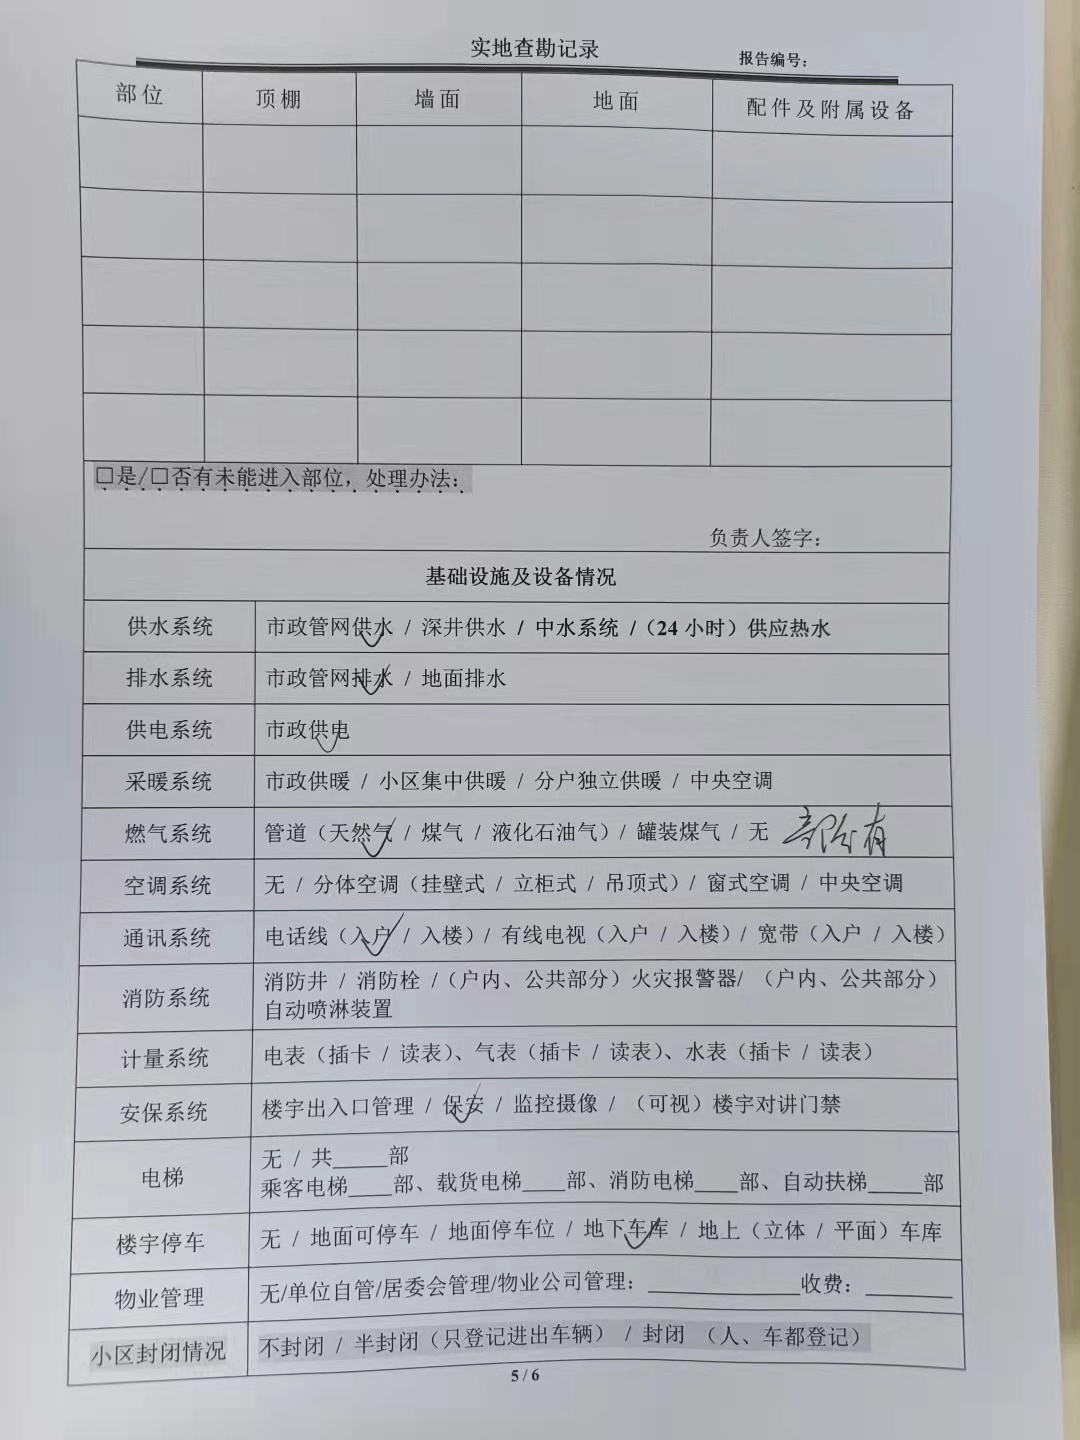 实地查勘记录
报告编号：
部位 顶棚 墙面 地面 配件及附属设备
□是/□否有未能进入部位，处理办法：
负责人签字：
基础设施及设备情况
供水系统 市政管网供水 / 深井供水 / 中水系统 /（24 小时）供应热水
排水系统 市政管网排水 / 地面排水
供电系统 市政供电
采暖系统 市政供暖 / 小区集中供暖 / 分户独立供暖 / 中央空调
燃气系统 管道（天然气 / 煤气 / 液化石油气）/ 罐装煤气 / 无 部分有
空调系统 无 / 分体空调（挂壁式 / 立柜式 / 吊顶式）/ 窗式空调 / 中央空调
通讯系统 电话线（入户 / 入楼）/ 有线电视（入户 / 入楼）/ 宽带（入户 / 入楼）
消防系统 消防井 / 消防栓 /（户内、公共部分）火灾报警器/ （户内、公共部分）
自动喷淋装置
计量系统 电表（插卡 / 读表）、气表（插卡 / 读表）、水表（插卡 / 读表）
安保系统 楼宇出入口管理 / 保安 / 监控摄像 / （可视）楼宇对讲门禁
电梯 无 / 共____部
乘客电梯____部、载货电梯____部、消防电梯____部、自动扶梯____部
楼宇停车 无 / 地面可停车 / 地面停车位 / 地下车库 / 地上（立体 / 平面）车库
物业管理 无/单位自管/居委会管理/物业公司管理：____________收费：_______
小区封闭情况 不封闭 / 半封闭（只登记进出车辆） / 封闭 （人、车都登记）
5 / 6